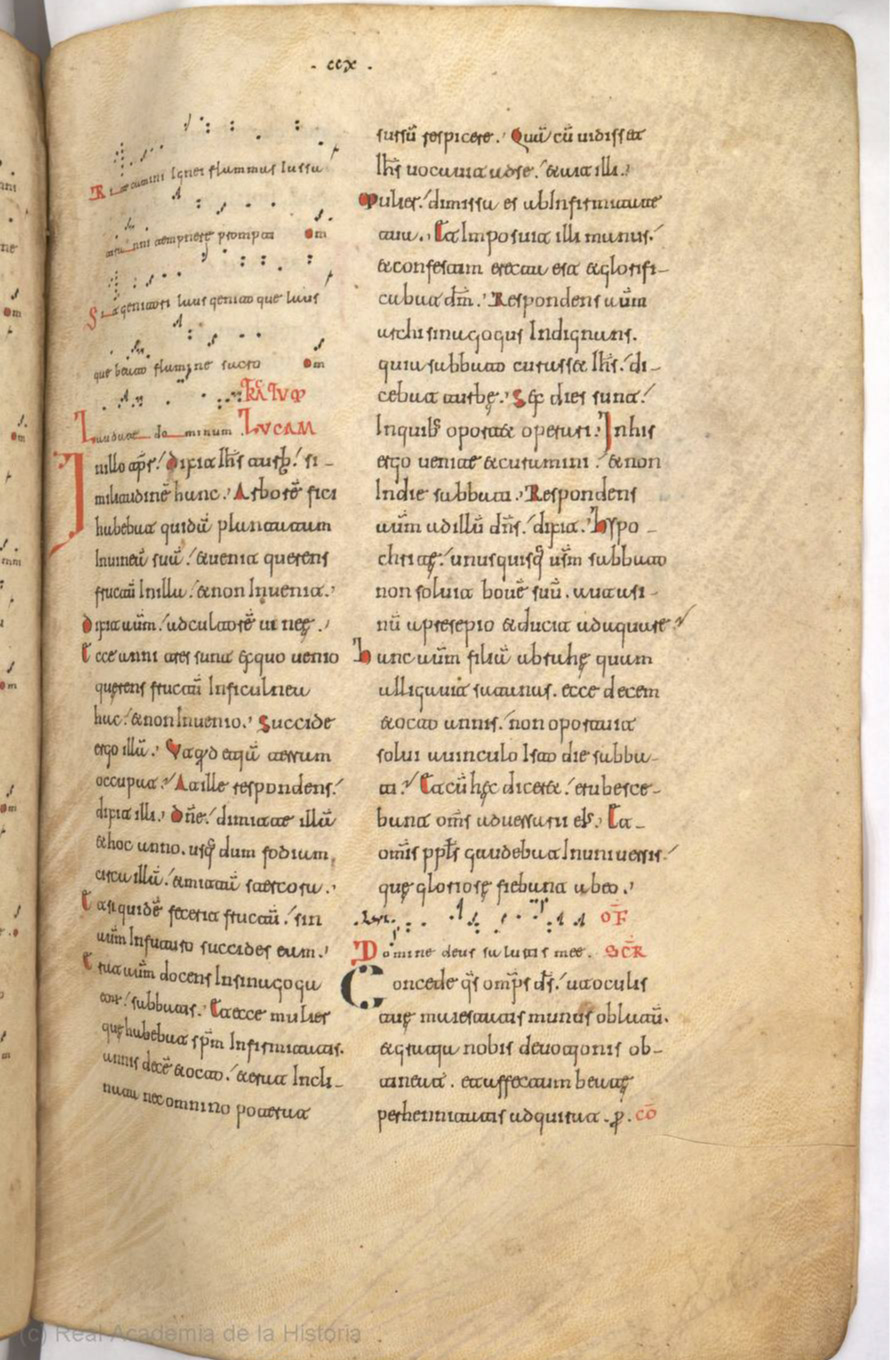 . ccx .
Rite camini ignei flammas iussu
atuni temperere prompta om
Sitgeniatori laus genitoque laus
que beato flamine sacro om
Laudate dominum
SCĐM LUCAM
In illo tp̄r. dixit ihs̄ turbis. si-
militudinē hanc. Arborē fici
habebat quidā plantatam
In uinea sua. et uenit querens
fructū In illa. et non Inuenit.
dixit aūm. ad cultorē uineę.
Ecce anni tres sunt ex quo uenio
querens fructū In ficulnea
hac. et non Inuenio. Succide
ergo illā. Vt quid etiā terram
occupat. At ille respondens.
dixit illi. Dn̄e. dimitte illā
et hoc anno. usq; dum fodiam
circa illā. et mittā stercora.
Et siquidē fecerit fructū. sin
aūm In futuro succides eam.
Erat aūm docens In sinagoga
eor/. sabbatis. Et ecce mulier
que habebat sp̄m Infirmitatis.
annis decē et octo. et erat Incli-
nata nec omnino poterat
sursū respicere. Quā cū uidisset
Ihs̄ uocauit ad se. et ait illi.
Mulier. dimissa es ab Infirmitate
tua. Et Imposuit illi manus.
et confestim erecta est et glorifi-
cabat dm̄. Respondens aūm
archisinagogus Indignans.
quia sabbato curasset Ihs̄. di-
cebat turbę. Sex dies sunt.
In quib; oportet operari. In his
ergo uenite et curamini. et non
In die sabbati. Respondens
aūm ad illū dn̄s. dixit. hypo-
critę. unusquisq; ur̄m sabbato
non soluit bouē suū. aut asi-
nū a presepio et ducit adaquare
hanc aūm filiā abrahę quam
alligauit satanas. ecce decem
et octo annis. non oportuit
solui a uinculo Isto die sabba-
ti. Et cū hęc diceret. erubesce-
bant om̄s aduersarii eI;. Et
om̄is pplūs gaudebat In uniuersis.
quę gloriosę fiebant ab eo.
OF
Domine deus salutis mee. SCR̄
Concede qs̄ omp̄s ds̄. ut oculis
tuę maiestatis munus oblatū.
et gratia nobis deuotionis ob-
tineat. et affectum beatę
perhennitatis adquirat. p. cō
(c) Real Academia de la Historia